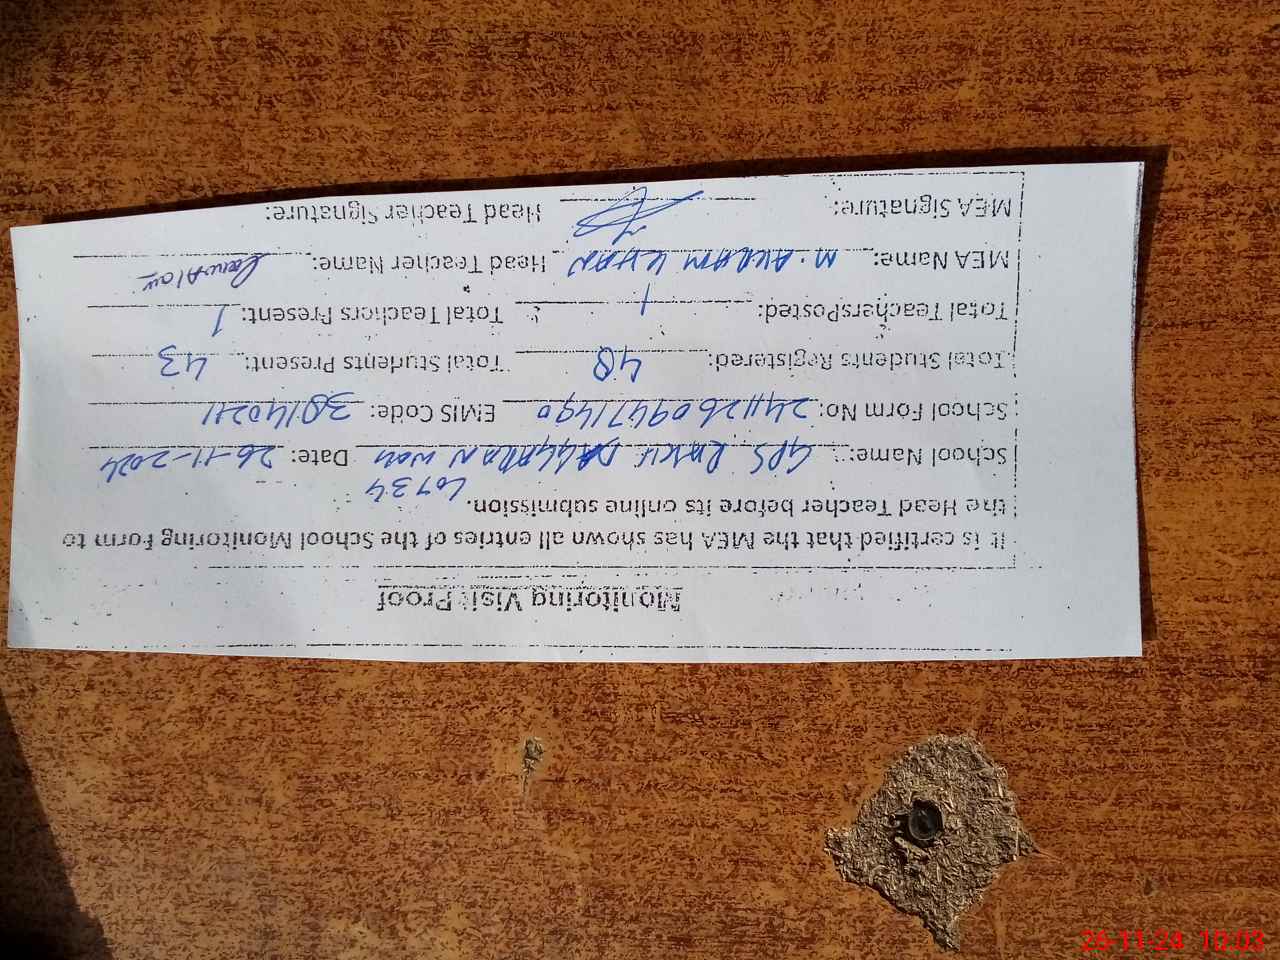 Monitoring Visit Proof
It is certified that the MEA has shown all entries of the School Monitoring Form to
the Head Teacher before its online submission.
School Name: GPS RAKH DAGGARAN Wali Date: 26-11-2024
School Form No: 24112609471490 EMIS Code: 38140211
Total Students Registered: 48 Total Students Present: 43
Total TeachersPosted: 1 Total Teachers Present: 1
MEA Name: M. AKRAM KHAN Head Teacher Name:
MEA Signature: Head Teacher Signature:
26-11-24 10:03